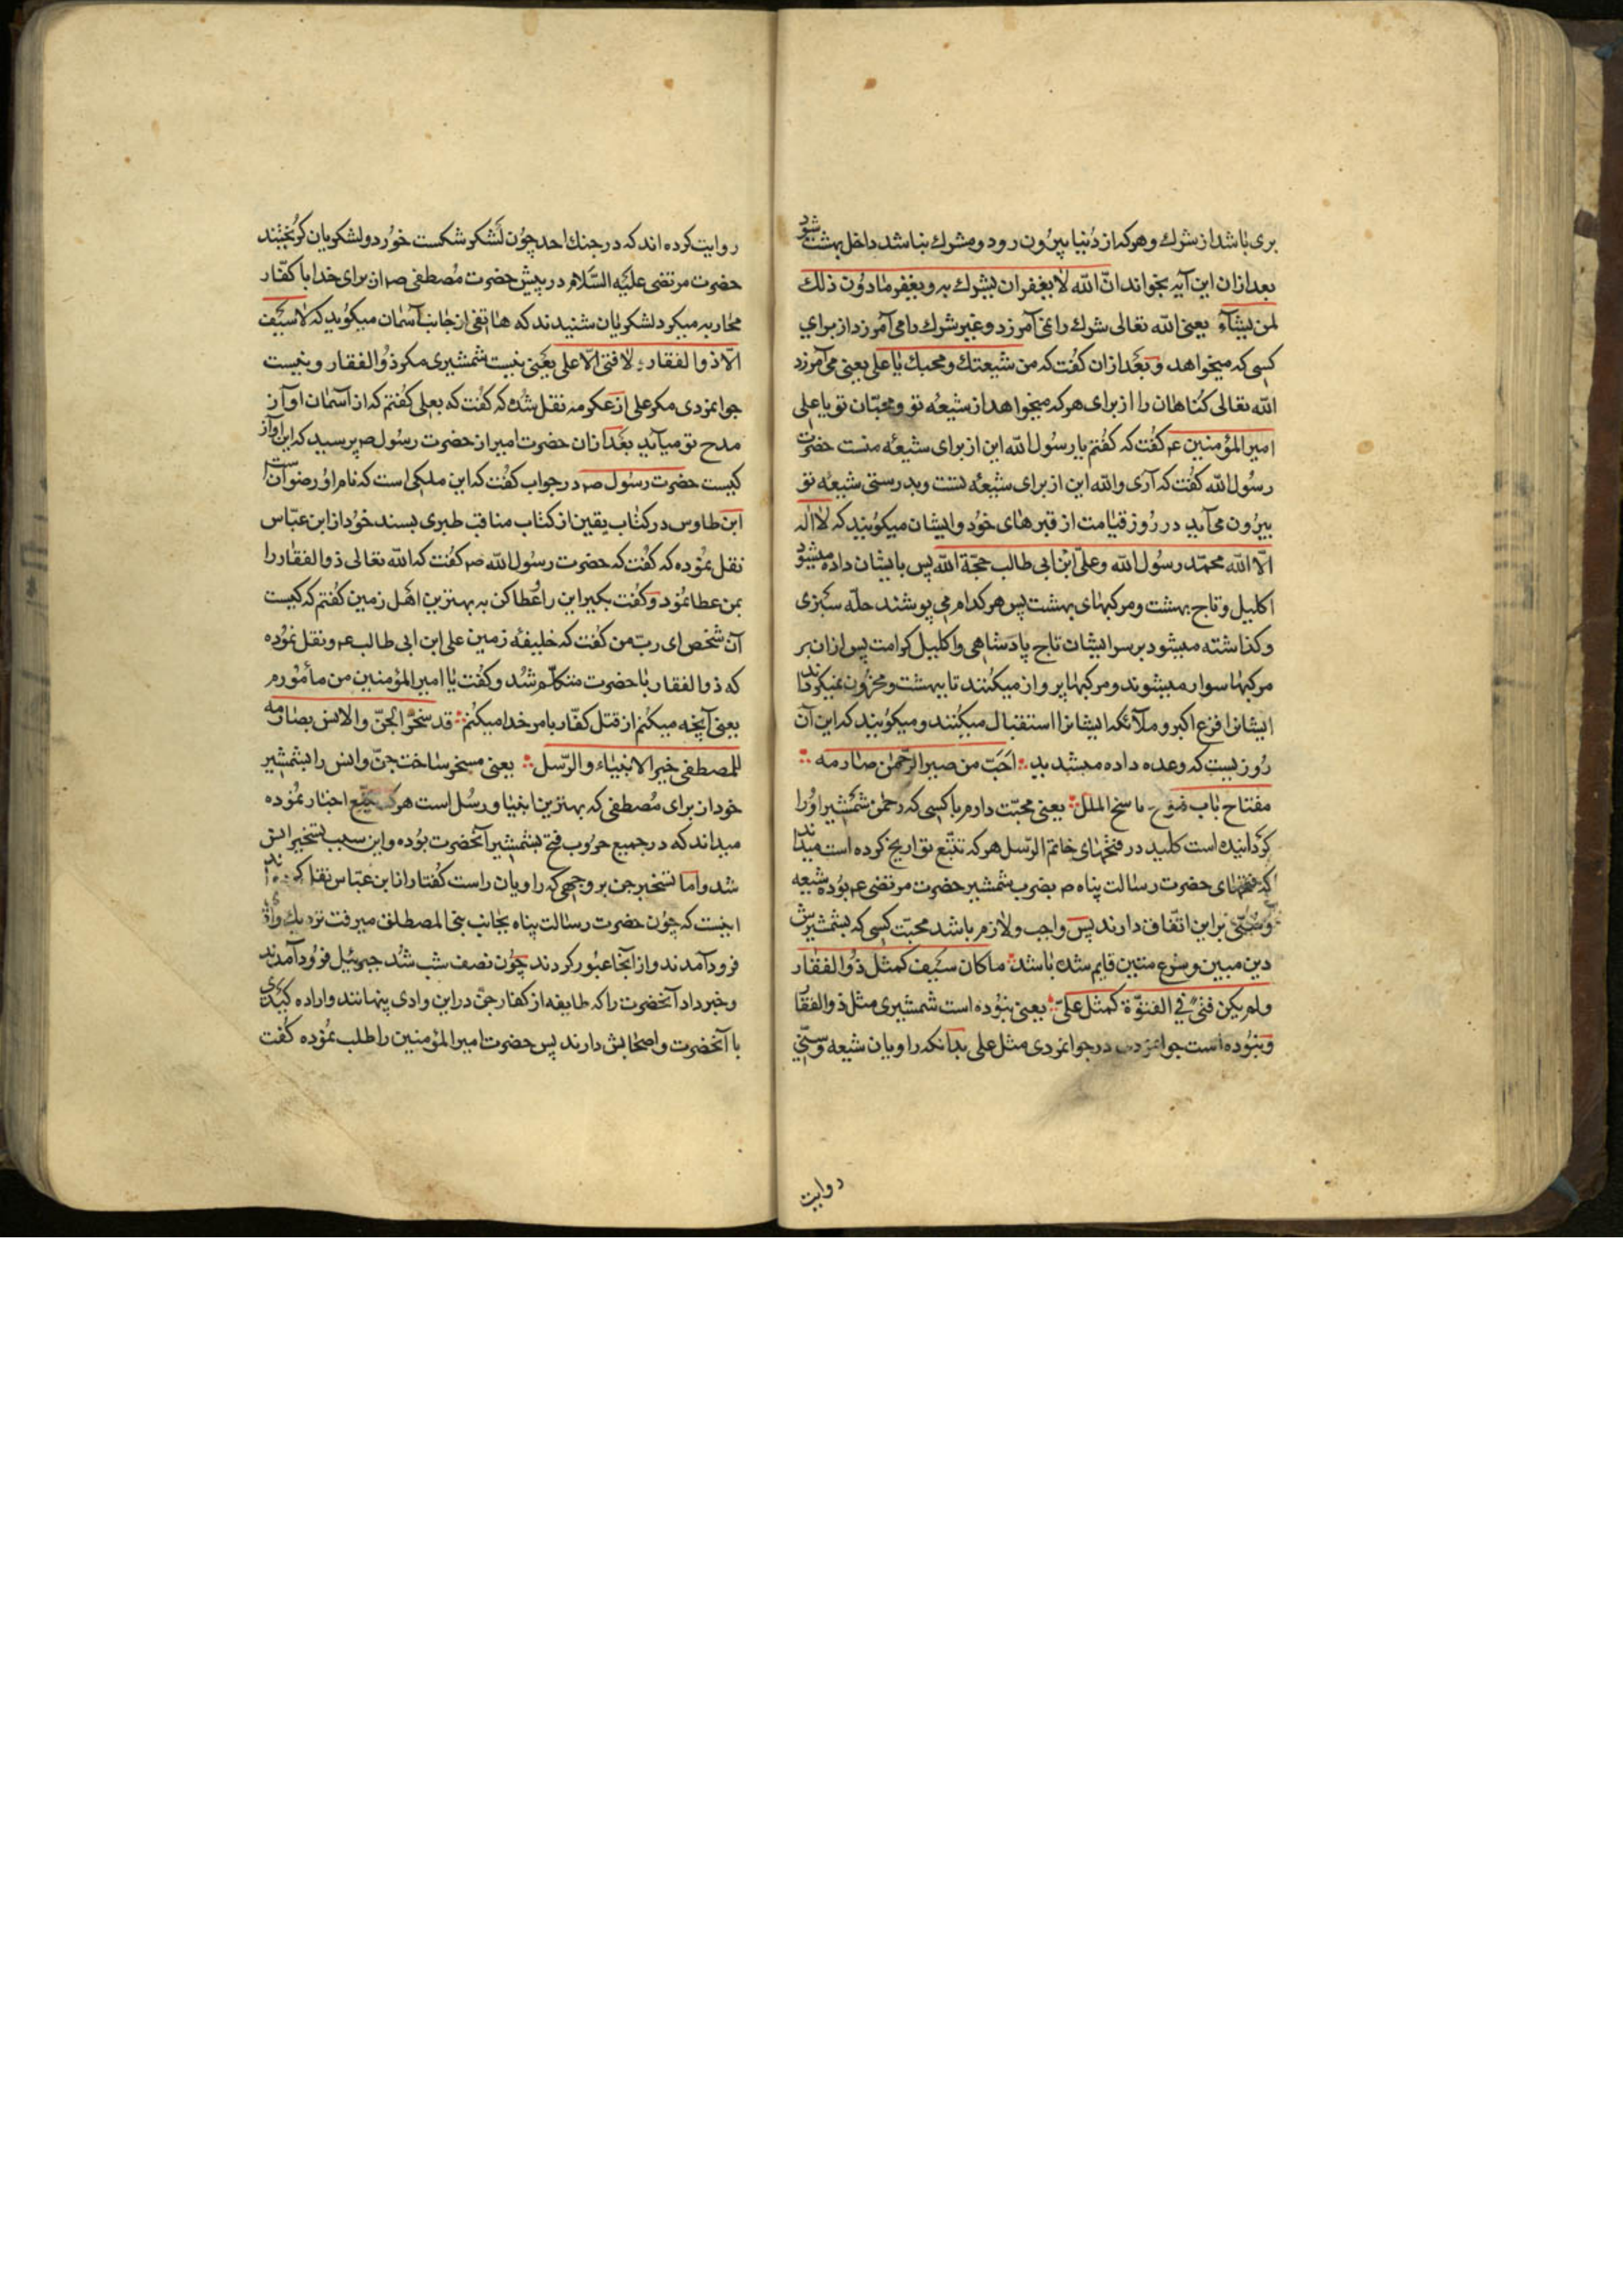 بری باشد از شرك و هر که از دنیا بیرون رود و مشرك نباشد داخل بهشت شود
بعد از ان این آیه بخواند انّ اللّه لا یغفر ان یشرك به و یغفر ما دون ذلك
لمن یشآء یعنی اللّه تعالی شرك را نمی آمرزد و غیر شرك را می آمرزد از برای
کسی که میخواهد و بعد از ان کفت که من شیعتك و محبك یا علی یعنی می آمرزد
اللّه تعالی کناهان را از برای هر که میخواهد از شیعه تو و محبّان تو یا علی
امیر المؤمنین ع کفت که کفتم یا رسول اللّه این از برای شیعهٔ منست حضرت
رسول اللّه کفت که آری واللّه این از برای شیعهٔ تست و بدرستی شیعهٔ تو
بیرون می آید در روز قیامت از قبرهای خود و ایشان میکویند که لا اله
الّا اللّه محمّد رسول اللّه و علیّ ابن ابی طالب حجّة اللّه پس بایشان داده میشود
اکلیل و تاج بهشت و مرکبهای بهشت پس هر کدام می پوشند حلّه سبزی
و کذاشته میشود بر سر ایشان تاج پادشاهی و اکلیل کرامت پس از ان بر
مرکبها سوار میشوند و مرکبها پرواز میکنند تا ببهشت و محزون نمیکرداند
ایشانرا فزع اکبر و ملآئکه ایشانرا استقبال میکنند و میکویند که این آن
روزیست که وعده داده میشدید احبّ من صیر الرّحمن صارمه
مفتاح باب فتوح ناسخ الملل یعنی محبّت دارم با کسی که رحمن شمشیر او را
کردانیده است کلید در فتحهای خاتم الرّسل هر که تتبّع تواریخ کرده است میداند
که فتحهای حضرت رسالت پناه ص بضرب شمشیر حضرت مرتضی ع بوده شیعه
و سنّی بر این اتّفاق دارند پس واجب و لازم باشد محبّت کسی که بشمشیرش
دین مبین و شرع متین قایم شده باشد ما کان سیف کمثل ذو الفقار
و لم یکن فتیً فی الفتوّة کمثل علیّ یعنی نبوده است شمشیری مثل ذو الفقار
و نبوده است جوانمردی در جوانمردی مثل علی بدانکه راویان شیعه و سنّی
روایت
روایت کرده اند که در جنك احد چون لشکر شکست خورد و لشکریان کریختند
حضرت مرتضی علیه السّلام در پیش حضرت مصطفی ص از برای خدا با کفّار
محاربه میکرد لشکریان شنیدند که هاتفی از جانب آسمان میکوید که لا سیف
الّا ذو الفقار لا فتی الّا علی یعنی نیست شمشیری مکر ذو الفقار و نیست
جوانمردی مکر علی از عکرمه نقل شده که کفت که بعلی کفتم که از آسمان اواز
مدح تو میآید بعد از ان حضرت امیر از حضرت رسول ص پرسید که این اواز
کیست حضرت رسول ص در جواب کفت که این ملکی است که نام او رضوان است
ابن طاوس در کتاب یقین از کتاب مناقب طبری بسند خود از ابن عبّاس
نقل نموده که کفت که حضرت رسول اللّه ص کفت که اللّه تعالی ذو الفقار را
بمن عطا نمود و کفت بکیر این را عطا کن به بهترین اهل زمین کفتم که کیست
آن شخص ای ربّ من کفت که خلیفهٔ زمین علی ابن ابی طالب ع و نقل نموده
که ذو الفقار با حضرت متکلّم شد و کفت یا امیر المؤمنین من مأمورم
یعنی آنچه میکنم از قتل کفّار بامر خدا میکنم قد سخّر الجنّ والانس بصارمه
للمصطفی خیر الانبیاء والرّسل یعنی مسخر ساخت جنّ و انس را بشمشیر
خود از برای مصطفی که بهترین انبیا و رسل است هر که تتبّع اخبار نموده
میداند که در جمیع حروب فتح بشمشیر آنحضرت بوده و این سبب تسخیر انس
شد و اما تسخیر جن بر وجهی که راویان راست کفتار از ابن عبّاس نقل کرده اند
اینست که چون حضرت رسالت پناه بجانب بنی المصطلق میرفت نزدیك وادی
فرود آمدند و از آنجا عبور کردند چون نصف شب شد جبرئیل فرود آمد
و خبر داد آنحضرت را که طایفه از کفار جنّ در این وادی پنهانند و اراده کیدی
با آنحضرت و اصحابش دارند پس حضرت امیر المؤمنین را طلب نموده کفت